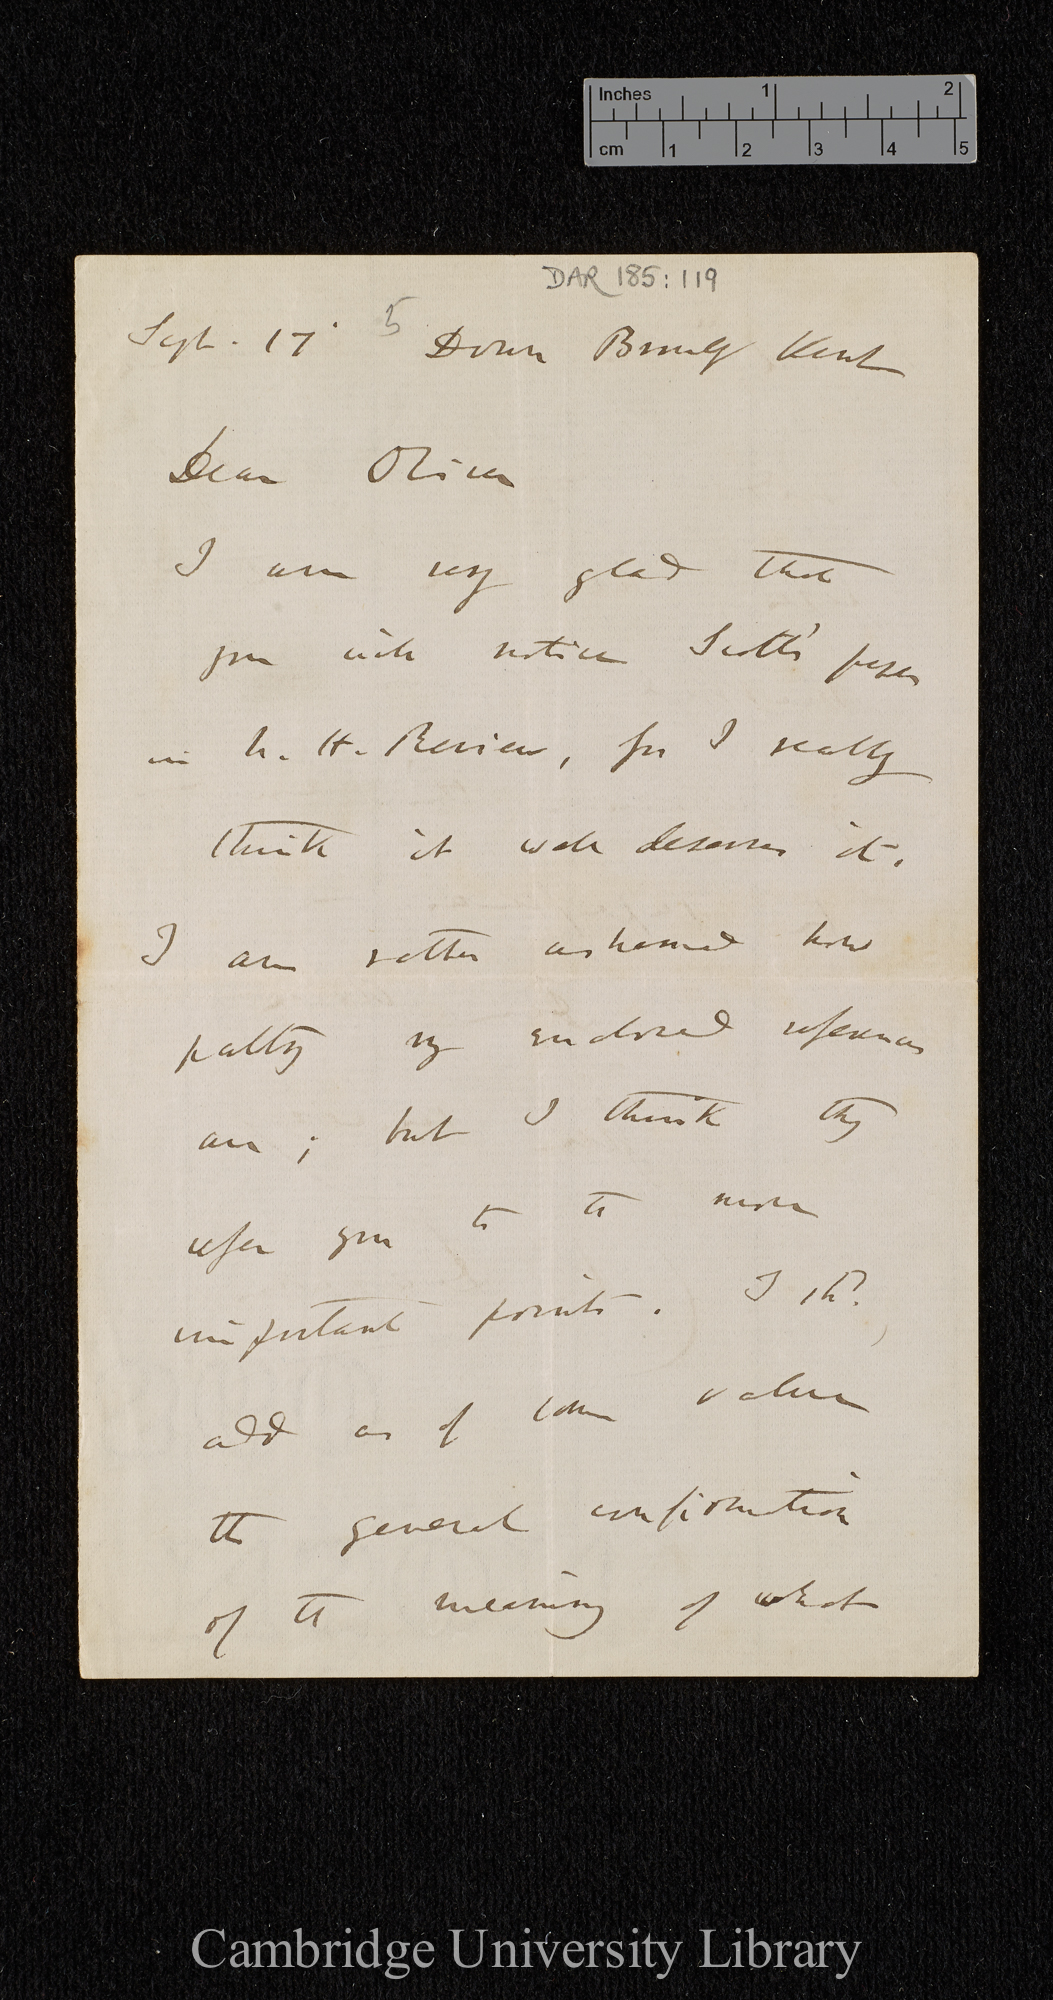 Inches 1 2
cm 1 2 3 4 5
DAR 185:119
Sept. 17 5 Down Bromley Kent
Dear Oliver
I am very glad that
you will notice Scott's paper
in N. H. Review, for I really
think it well deserves it.
I am rather ashamed how
paltry my enclosed references
are; but I think they
refer you to the more
important points. I shd.
add as of some value
the general confirmation
of the meaning of what
Cambridge University Library